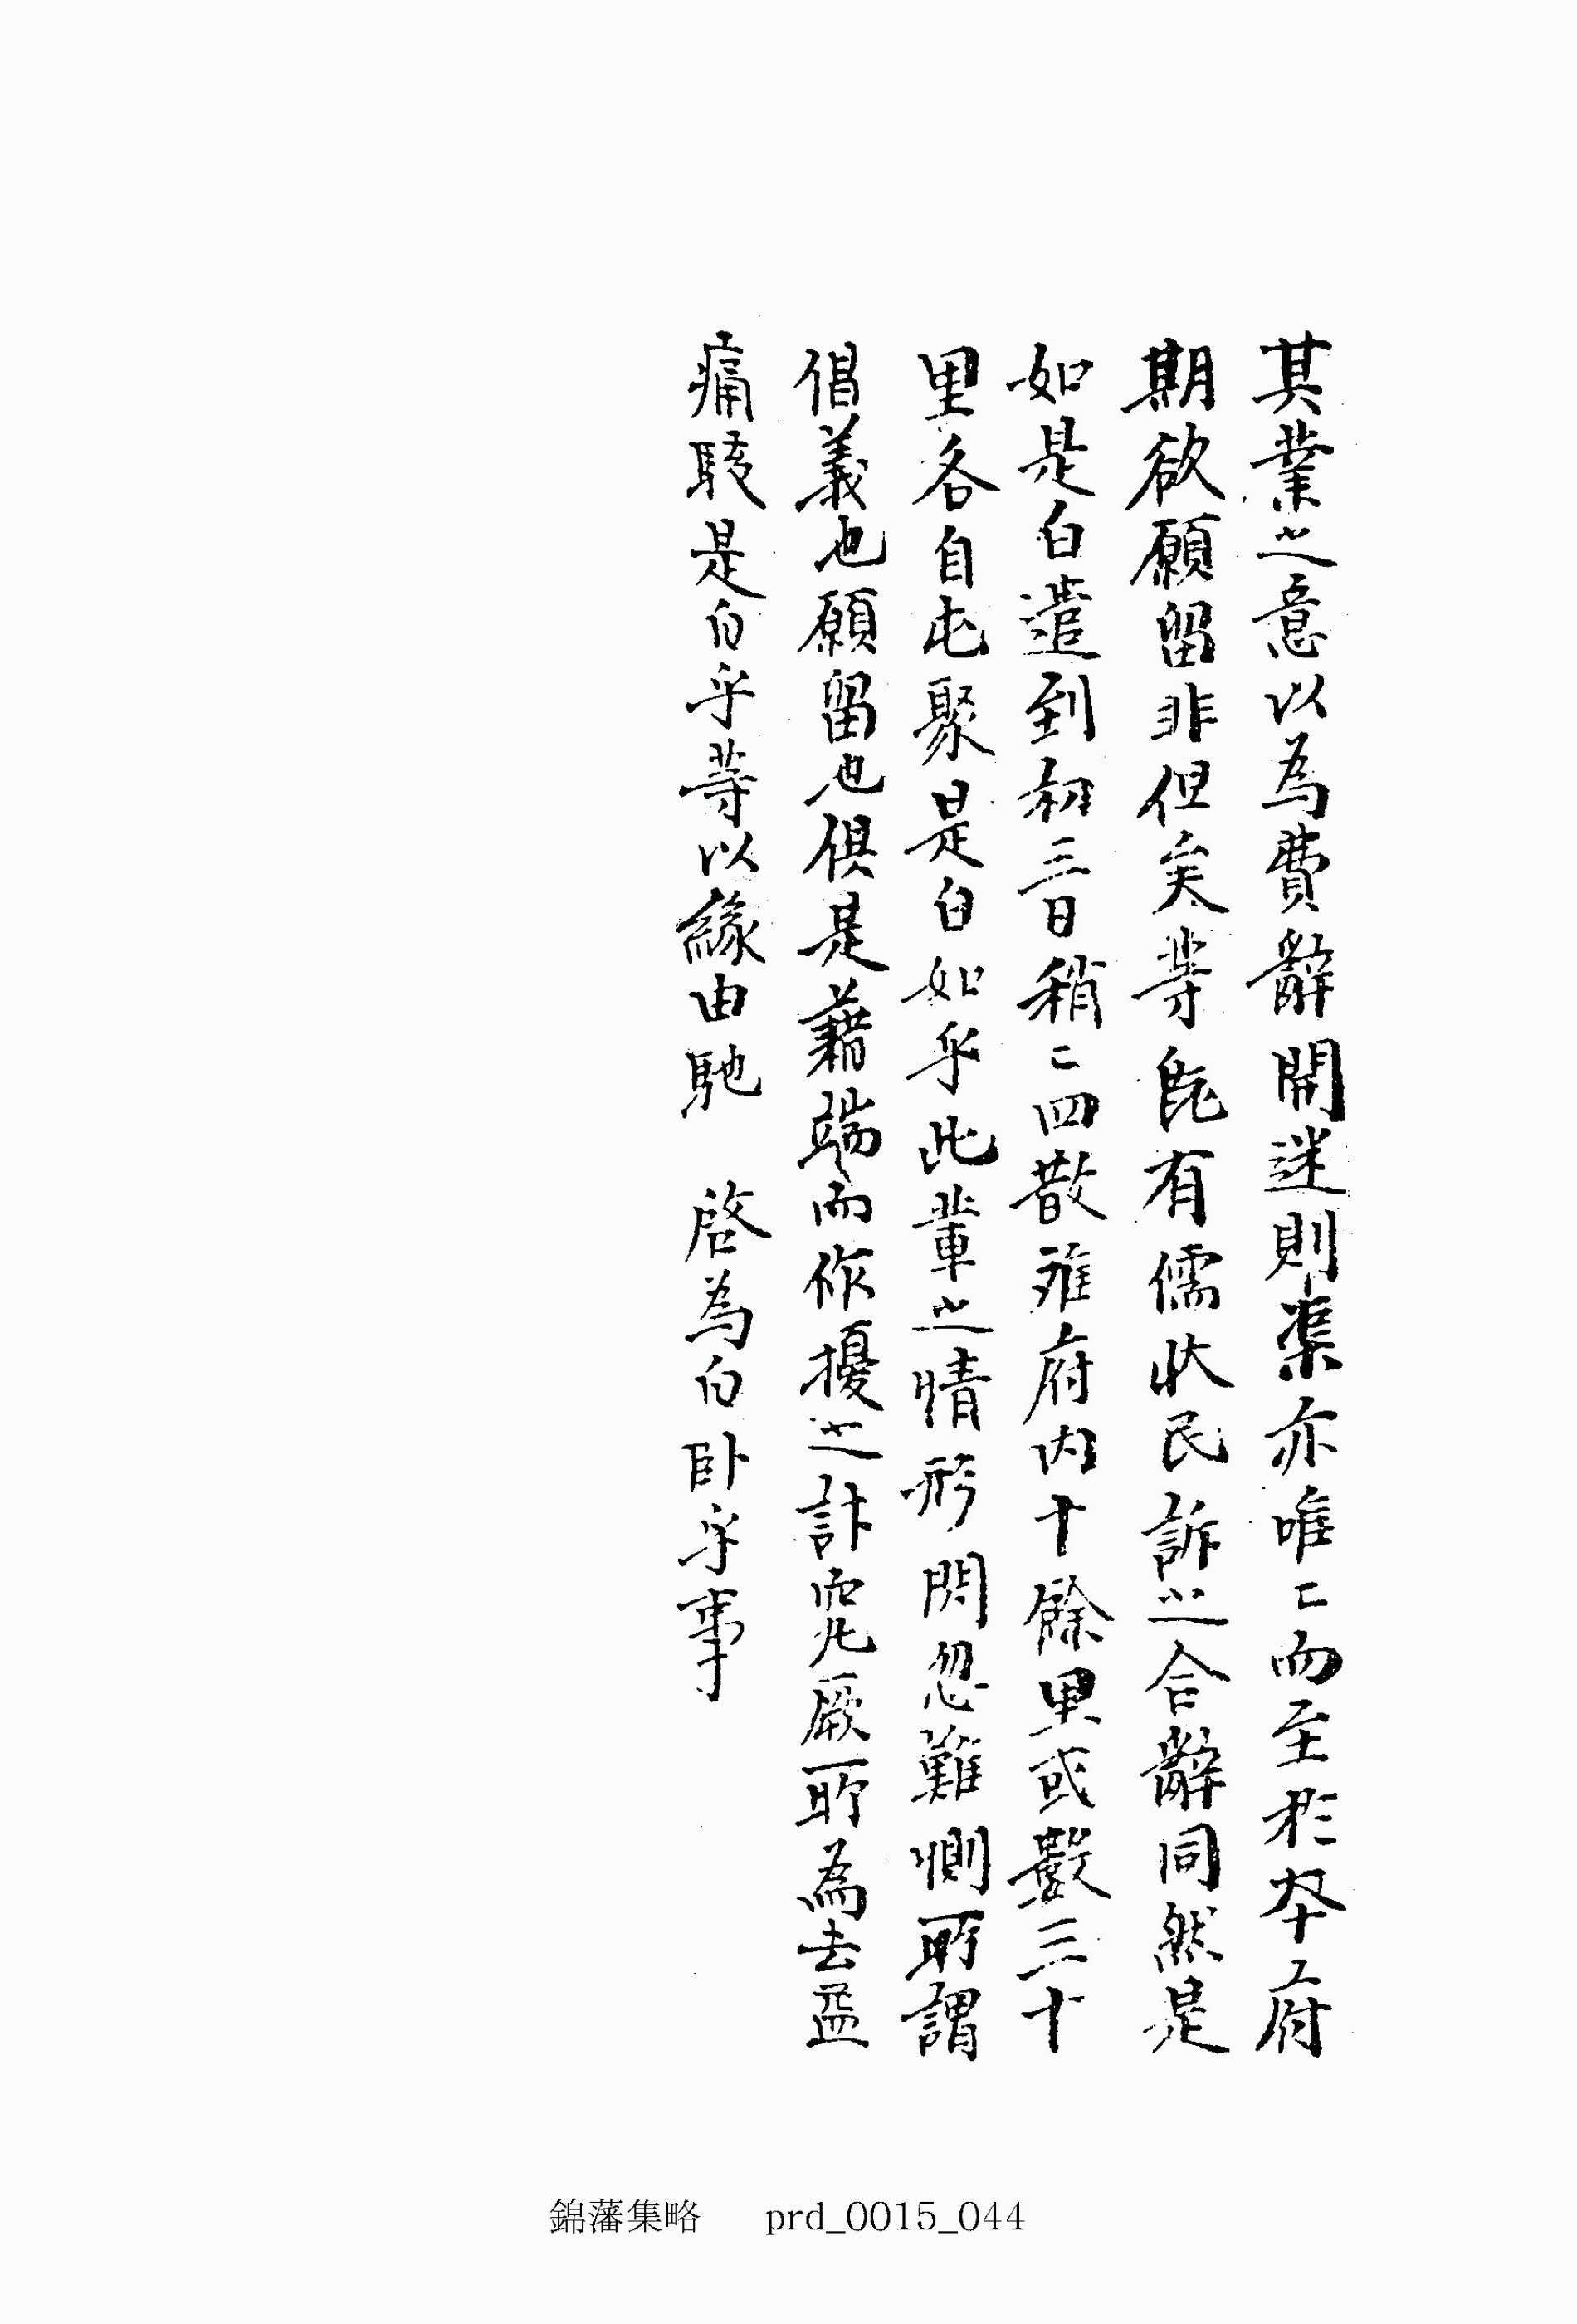 其業之意以為費辭開迷則渠亦唯〻而至於本府
期欲願留非但矣等既有儒狀民訴之合辭同然是
如是白遣到初三日稍〻四散雖府內十餘里或數三十
里各自屯聚是白如乎此輩之情形閃忽難惻所謂
倡義也願留也俱是藉端而作擾之計究厥所為去益
痛駭是白乎等以緣由馳 啓為白臥乎事
錦藩集略 prd_0015_044